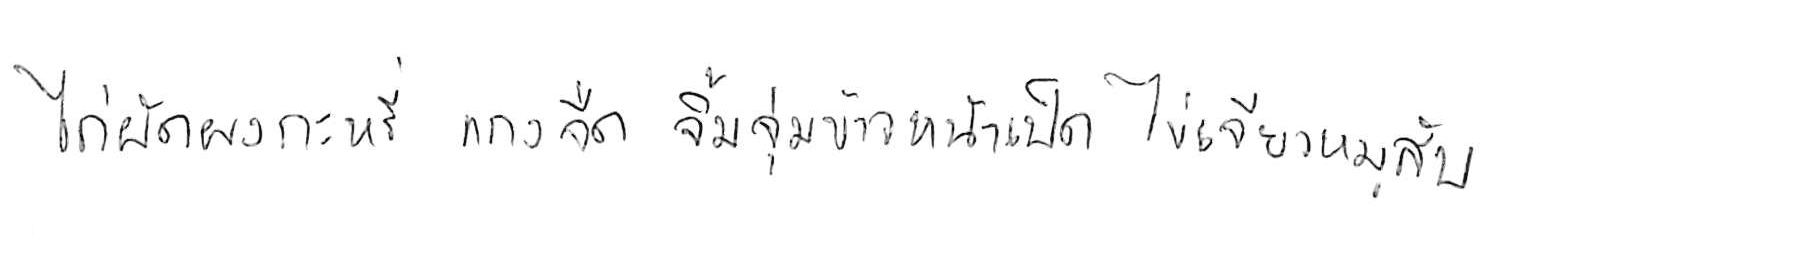 ไก่ผัดผงกะหรี่ แกงจืด จิ้มจุ่มข้าวหน้าเป็ด ไข่เจียวหมูสับ